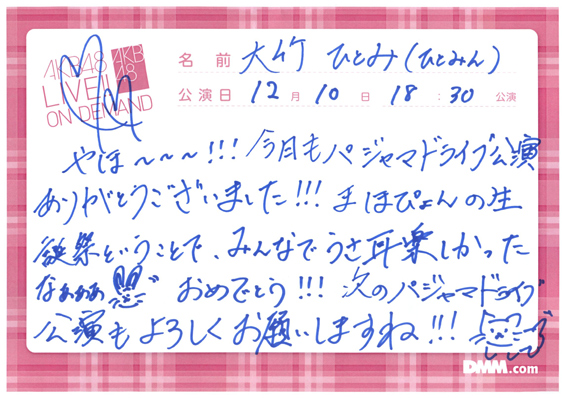 AKB48
LIVE!!
ON DEMAND
AKB
48
名前 大竹 ひとみ(ひとみん)
公演日 12月10日 18:30公演
やほ〜〜〜!!! 今月もパジャマドライブ公演
ありがとうございました!!! まほぴょんの生
誕祭ということで、みんなでうさ耳楽しかった
なぁぁぁ おめでとう!!! 次のパジャマドライブ
公演もよろしくお願いしますね!!!
DMM.com